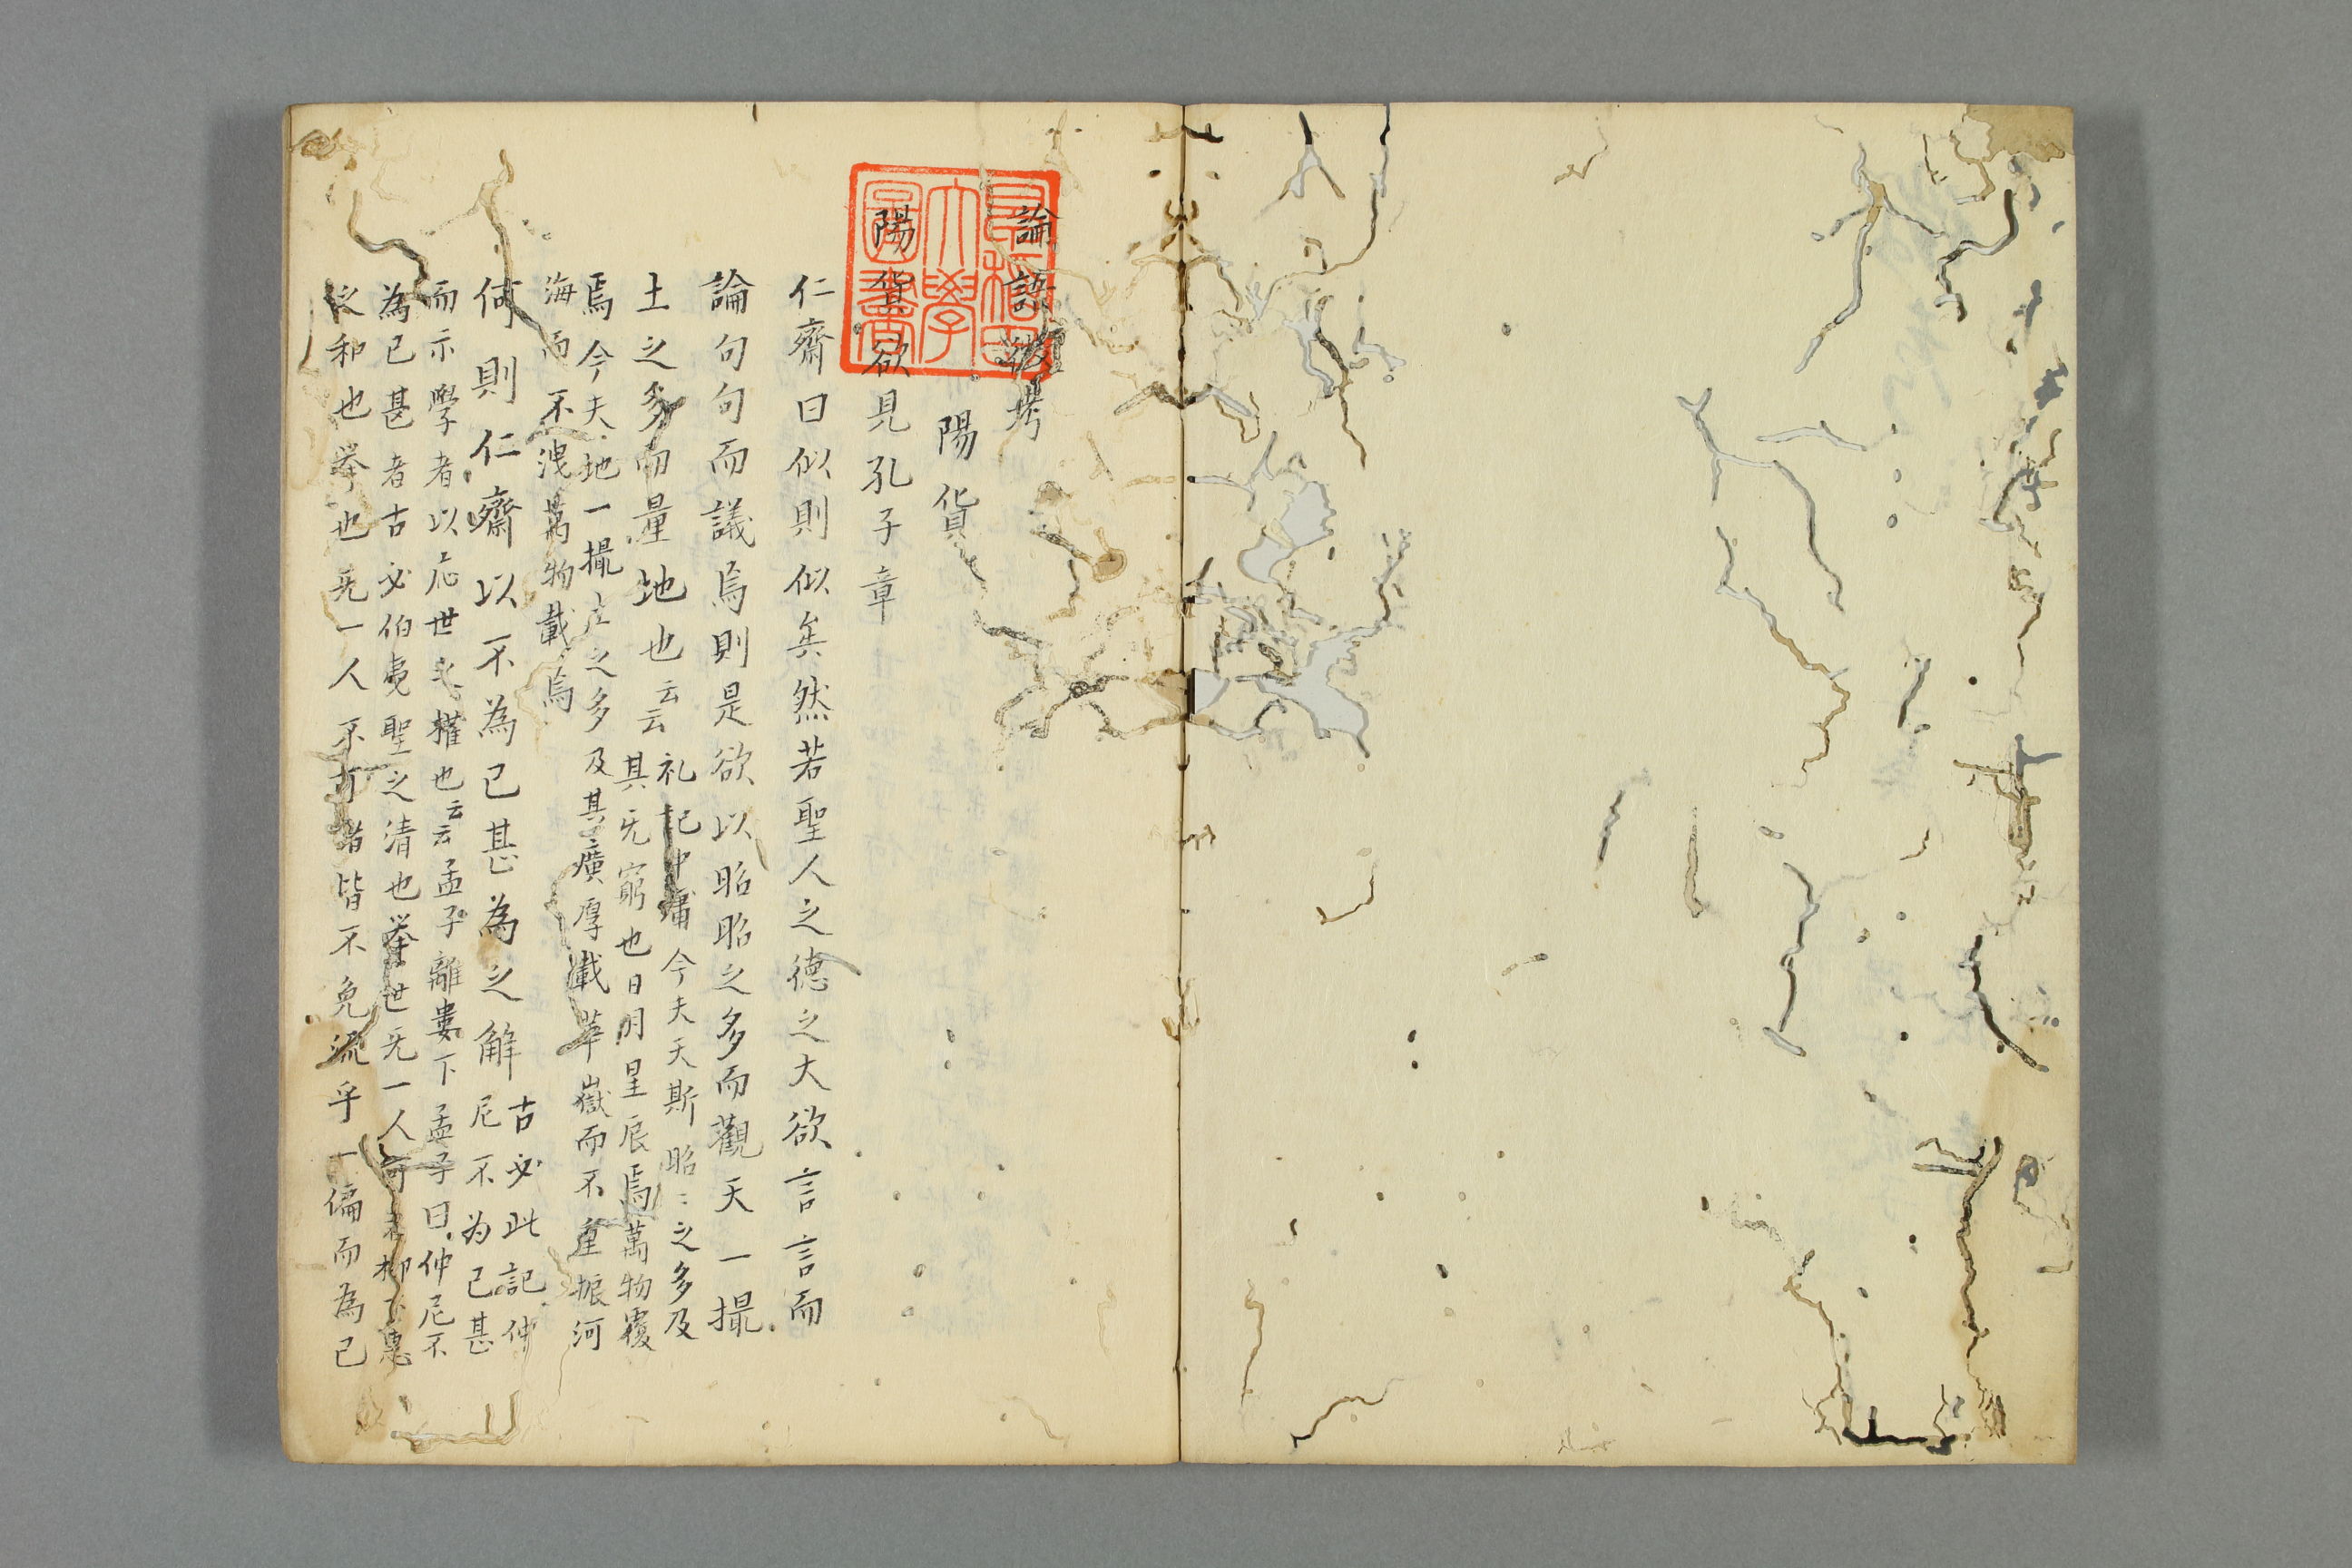 論語徴考
陽貨
陽貨欲見孔子章
仁齋曰似則似矣然若聖人之德之大欲言言而
論句句而議焉則是欲以昭昭之多而觀天一撮
土之多而量地也云云
礼記中庸今夫天斯昭〻之多及
其无窮也日月星辰焉萬物覆
焉今夫地一撮土之多及其廣厚載華嶽而不重振河
海而不洩萬物載焉
何則仁齋以不為已甚為之解
古必此記仲
尼不为已甚
而示學者以応世之權也云云孟子離婁下孟子曰仲尼不
為已甚者古必伯夷聖之清也挙世无一人可者柳下惠
和也挙也无一人不可者皆不免流乎一偏而為已
早稲田大學圖書